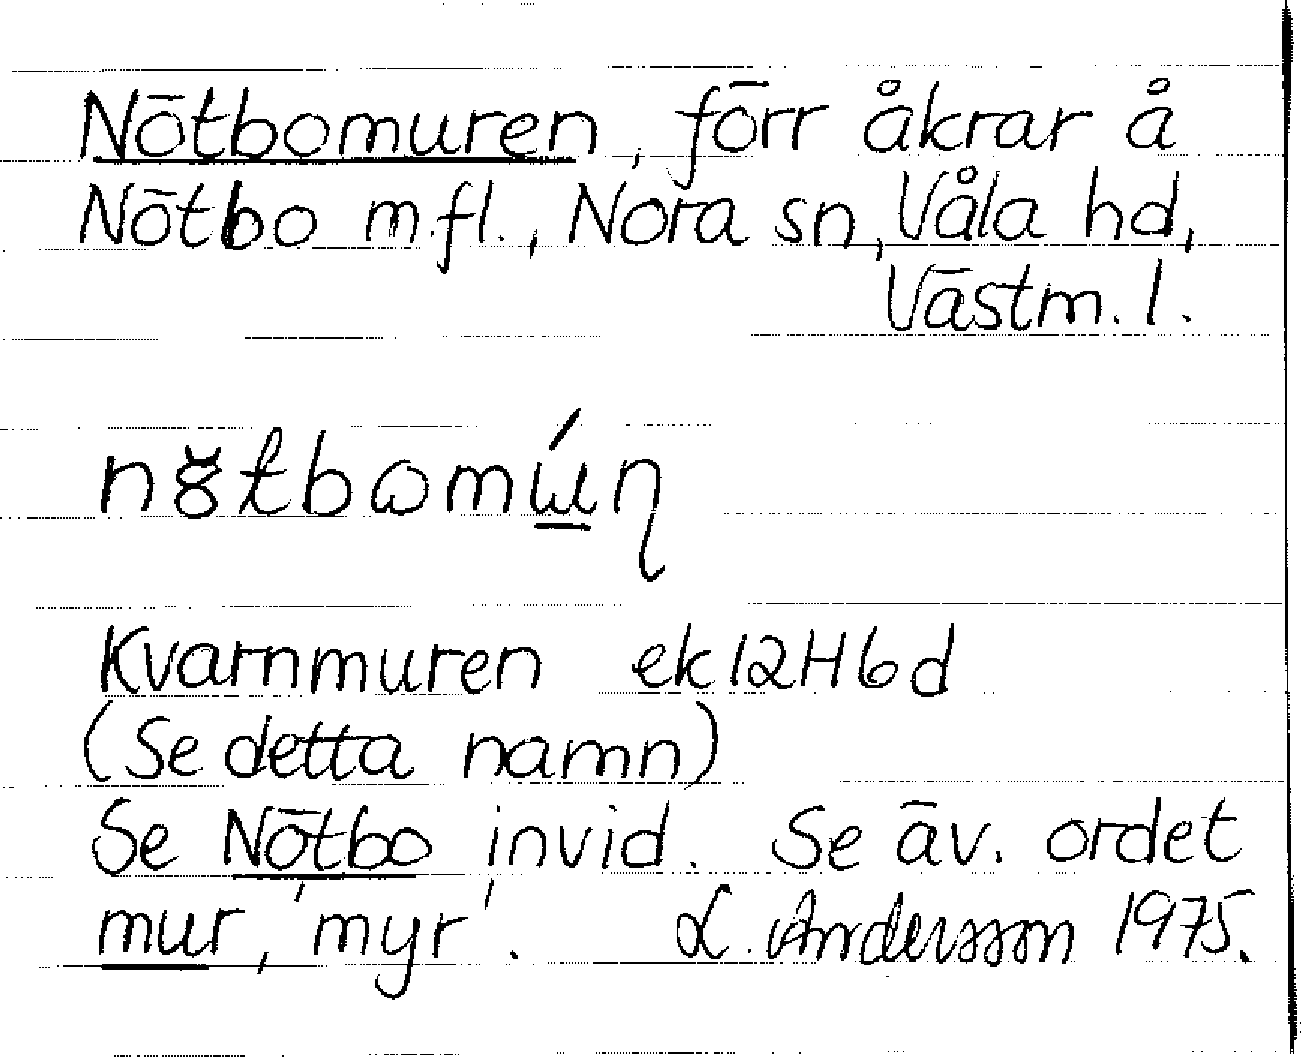 Nötbomuren, förr åkrar å
Nötbo m.fl., Nora sn, Våla hd,
Västm. l.
Kvarnmuren ek 12H6d
(Se detta namn)
Se Nötbo invid. Se äv. ordet
mur, 'myr'. L. Andersson 1975.